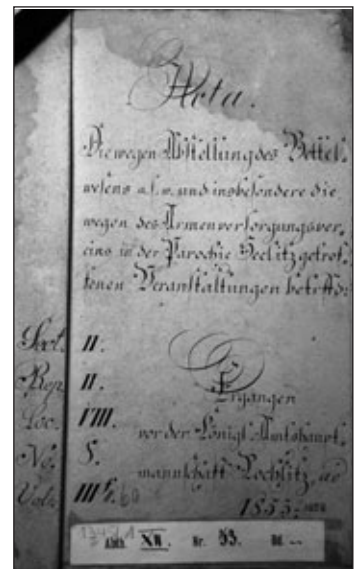 Acta.
Die wegen Abstellung des Bettel-
wesens u.s.w. und insbesondere die
wegen des Armenversorgungsver-
eins in der Parochie Seelitz getrof-
fenen Veranstaltungen betrffd:
Sect. II.
Rep. II.
Loc. VIII.
No. 5.
Vol.
Ergangen
vor der Königl. Amtshaupt-
mannschaft Rochlitz, ao
1855.
Abth. XIV. Nr. 53. Bd. --